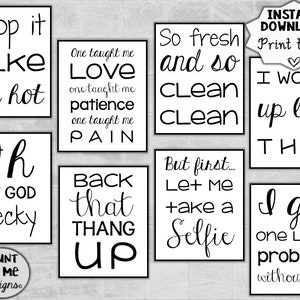 op it
ike
hot
One taught me
LOVE
one taught me
patience
one taught me
PAIN
So fresh
and so
CLEAN
CLEAN
INSTA
DOWNL
Print
I WO
up l
TH
h
GOD
ecky
BACK
that
THANG
UP
But first...
Let me
take a
Selfie
I g
one L
prob
withou
UNT
ME
igns